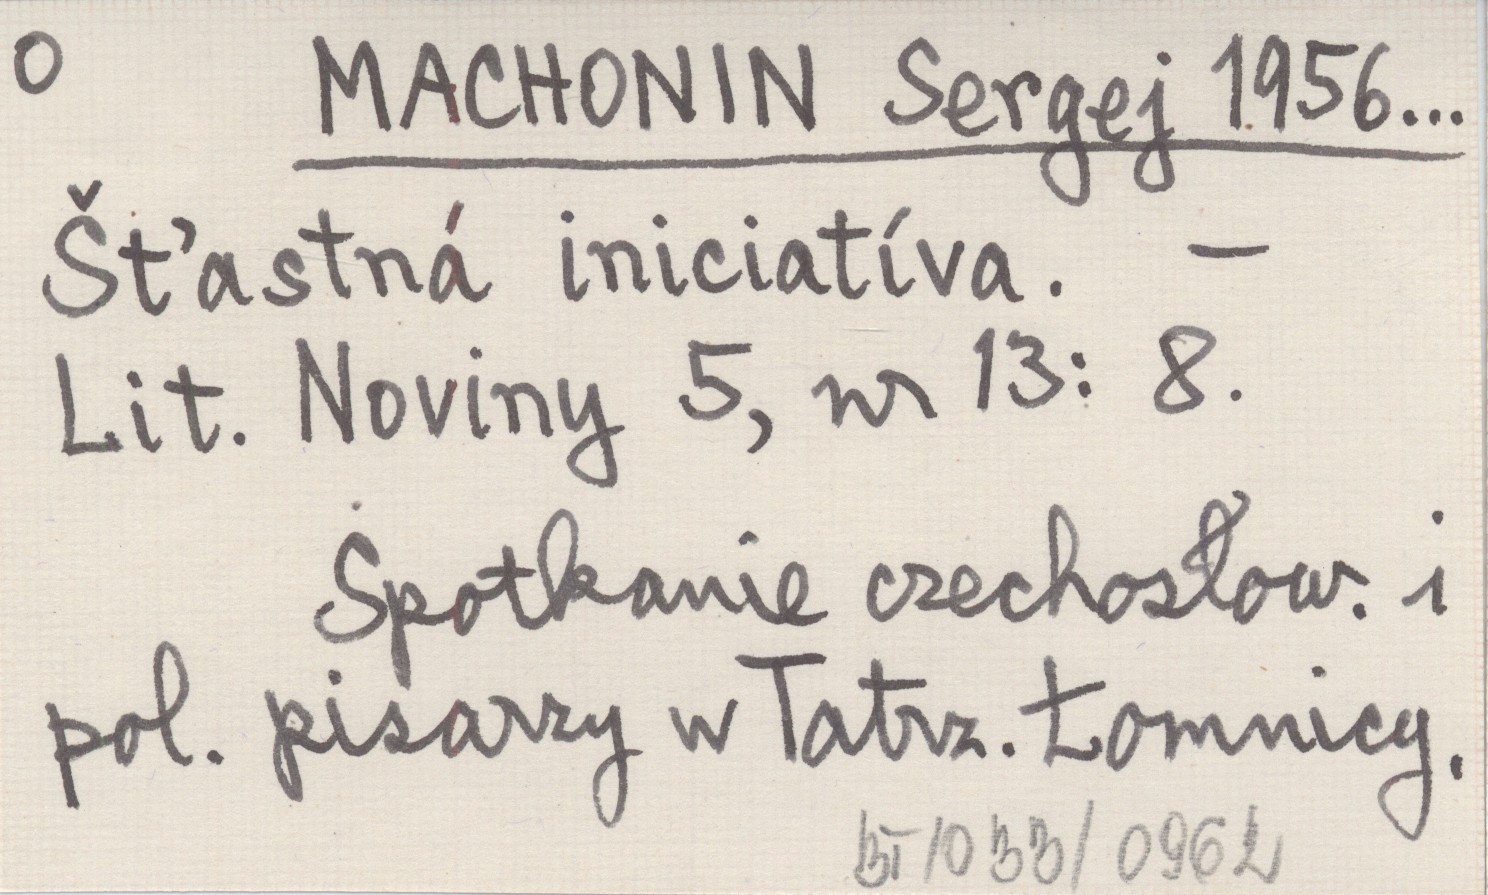 O MACHONIN Sergej 1956...
Šťastná iniciatíva. —
Lit. Noviny 5, nr 13: 8.
Spotkanie czechosłow. i
pol. pisarzy w Tatrz. Łomnicy.
/033/0962